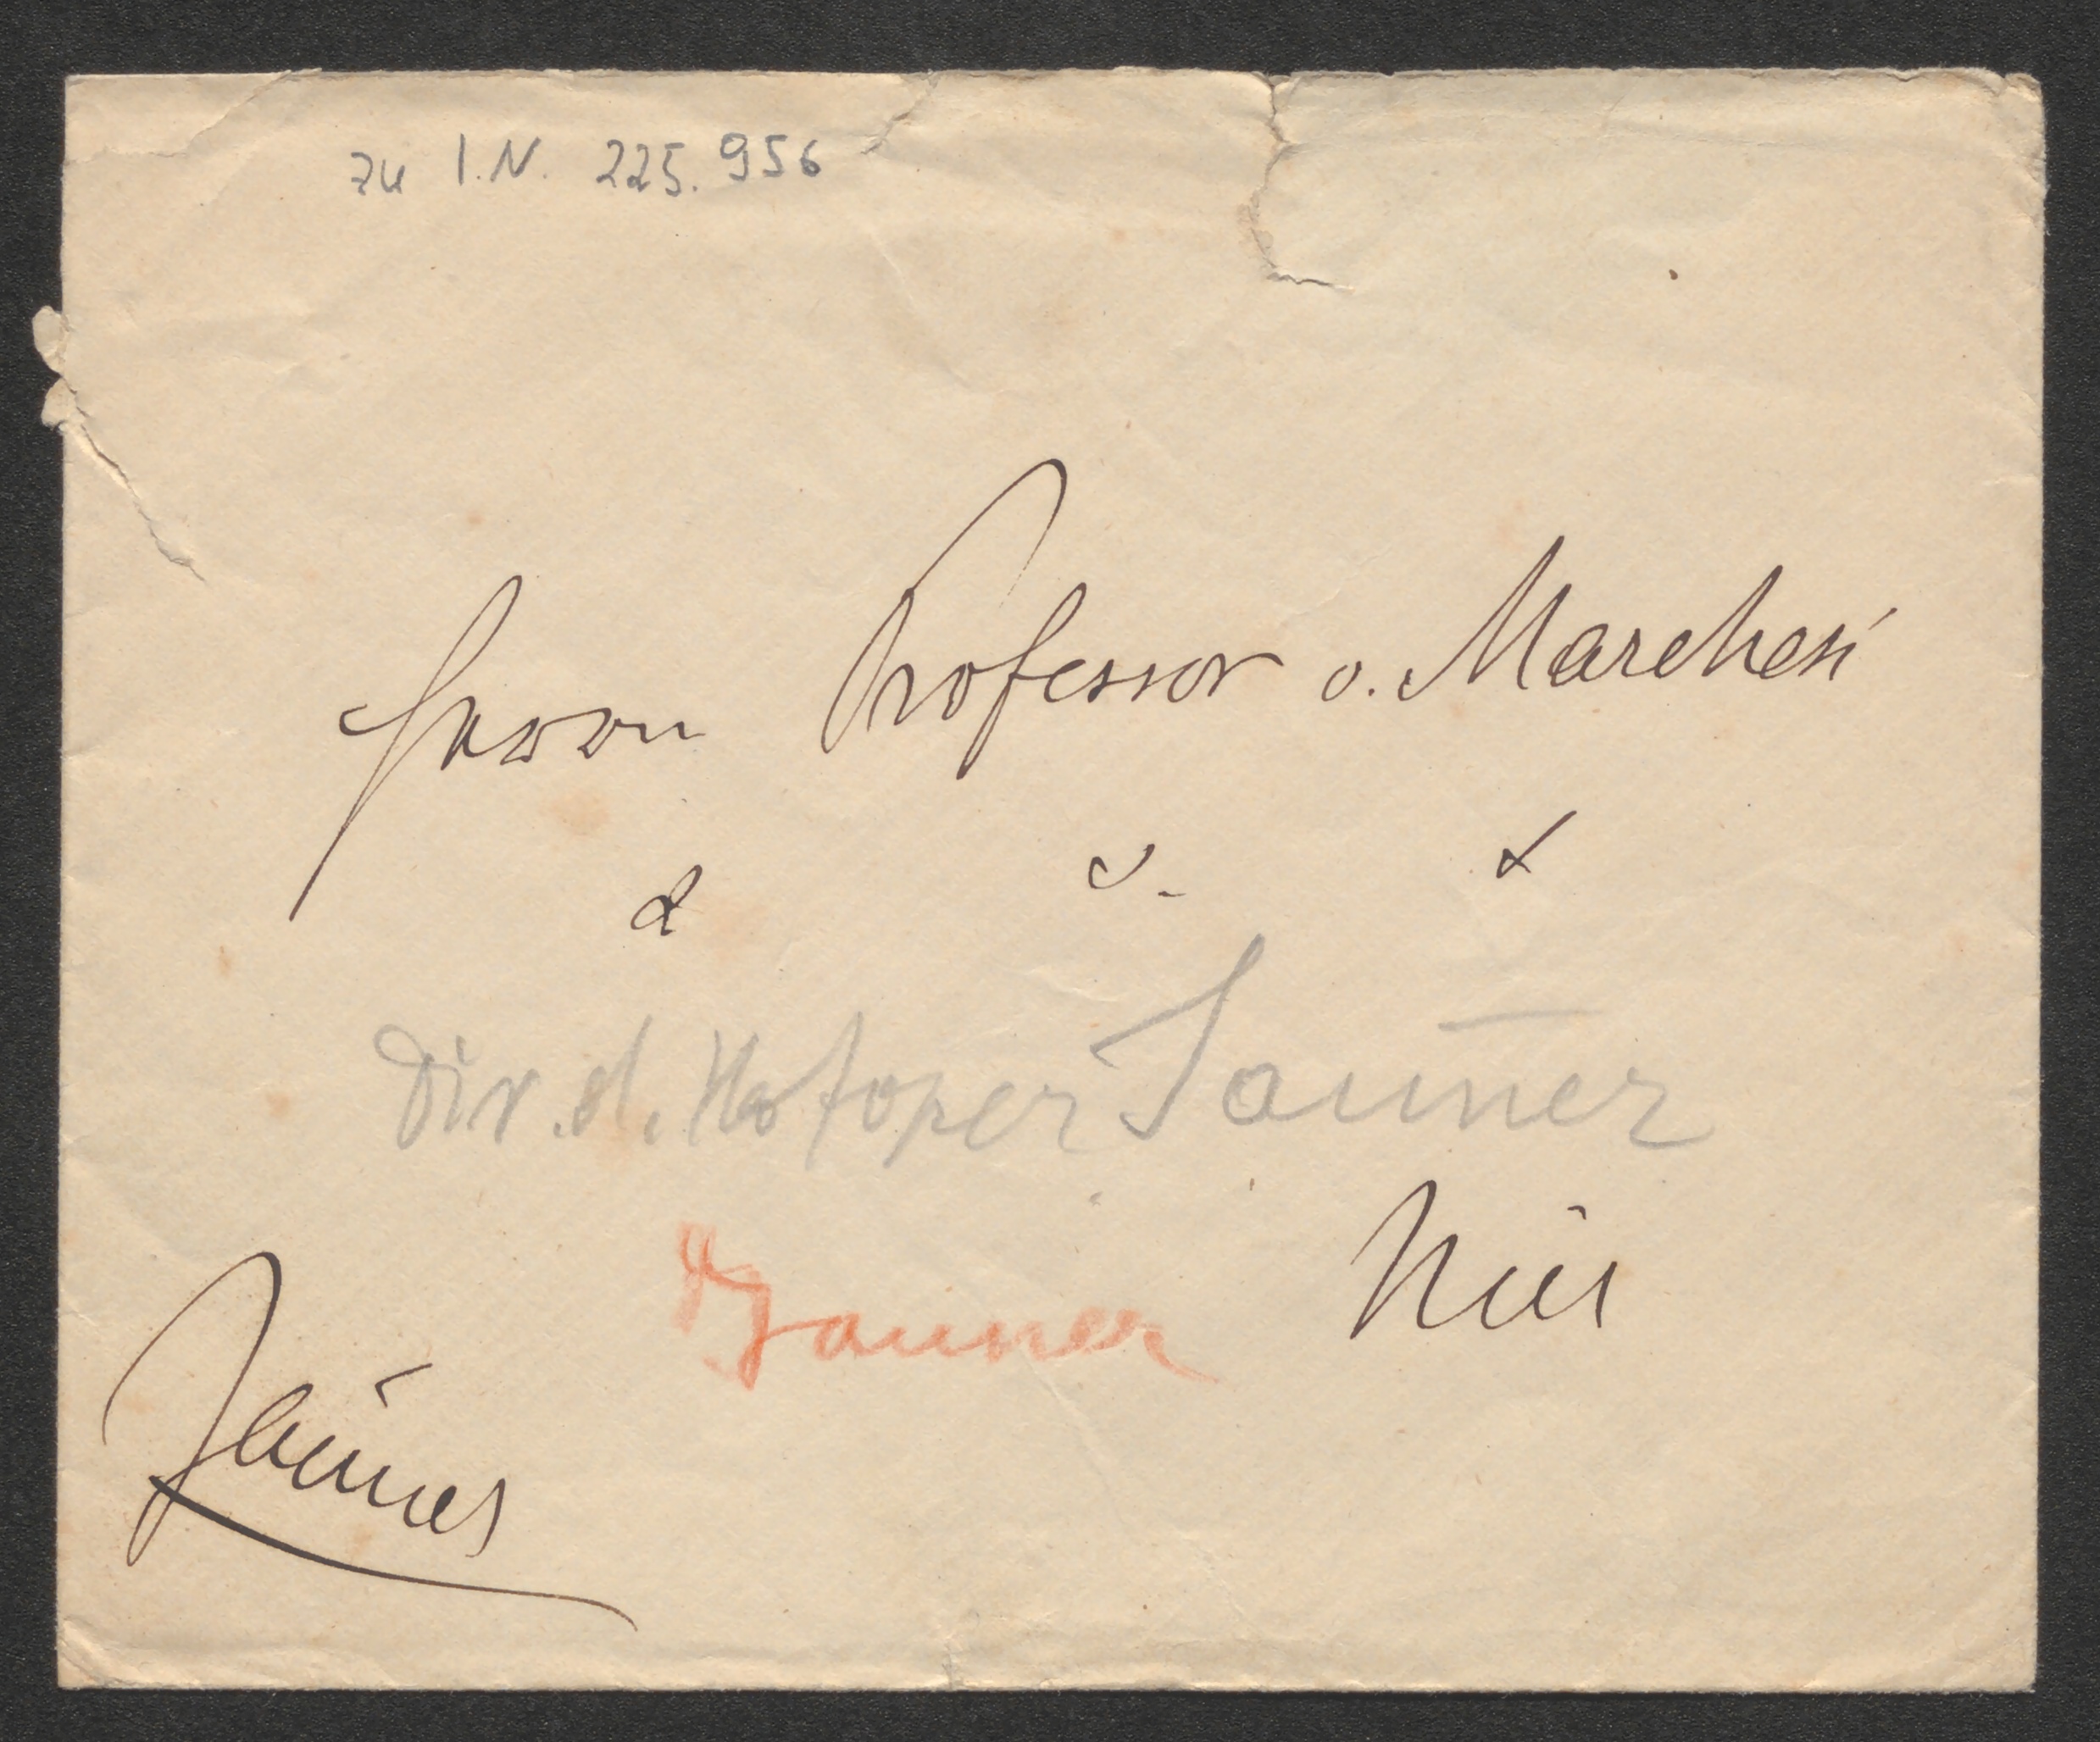 zu I.N. 225.956
Herrn Professor v. Marchesi
Dir. d. Hofoper Jauner
Hier
Jauner
Jauner